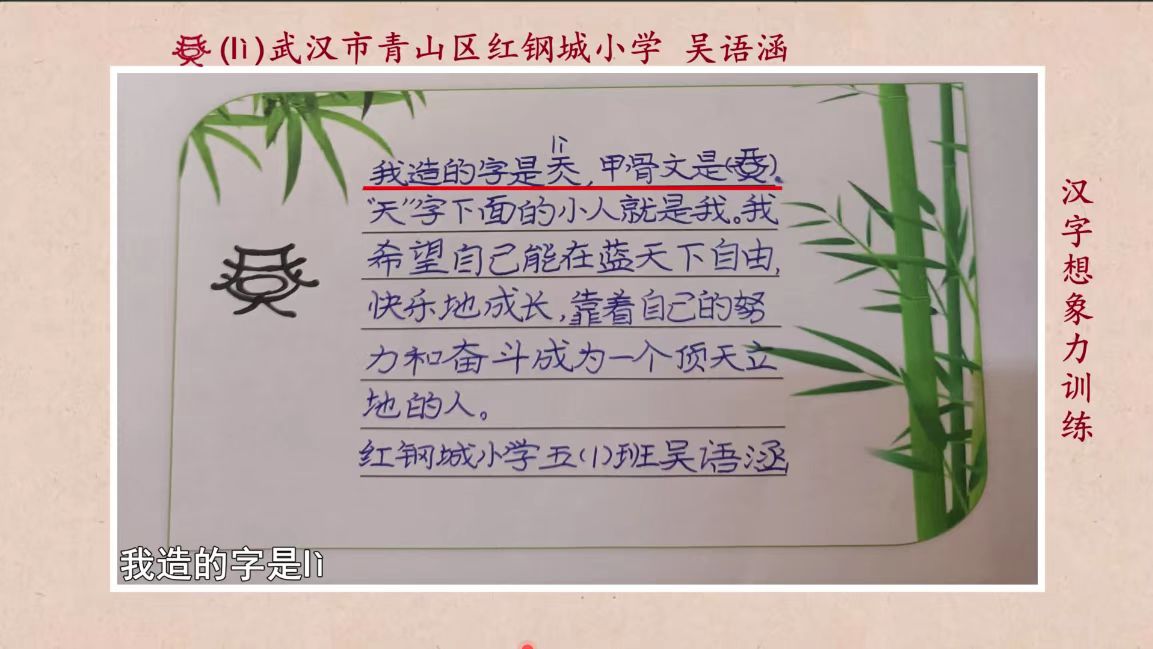 (lì)武汉市青山区红钢城小学 吴语涵
汉字想象力训练
lì
我造的字是,甲骨文是()。
“天”字下面的小人就是我。我
希望自己能在蓝天下自由,
快乐地成长,靠着自己的努
力和奋斗成为一个顶天立
地的人。
红钢城小学五(1)班吴语涵
我造的字是lì